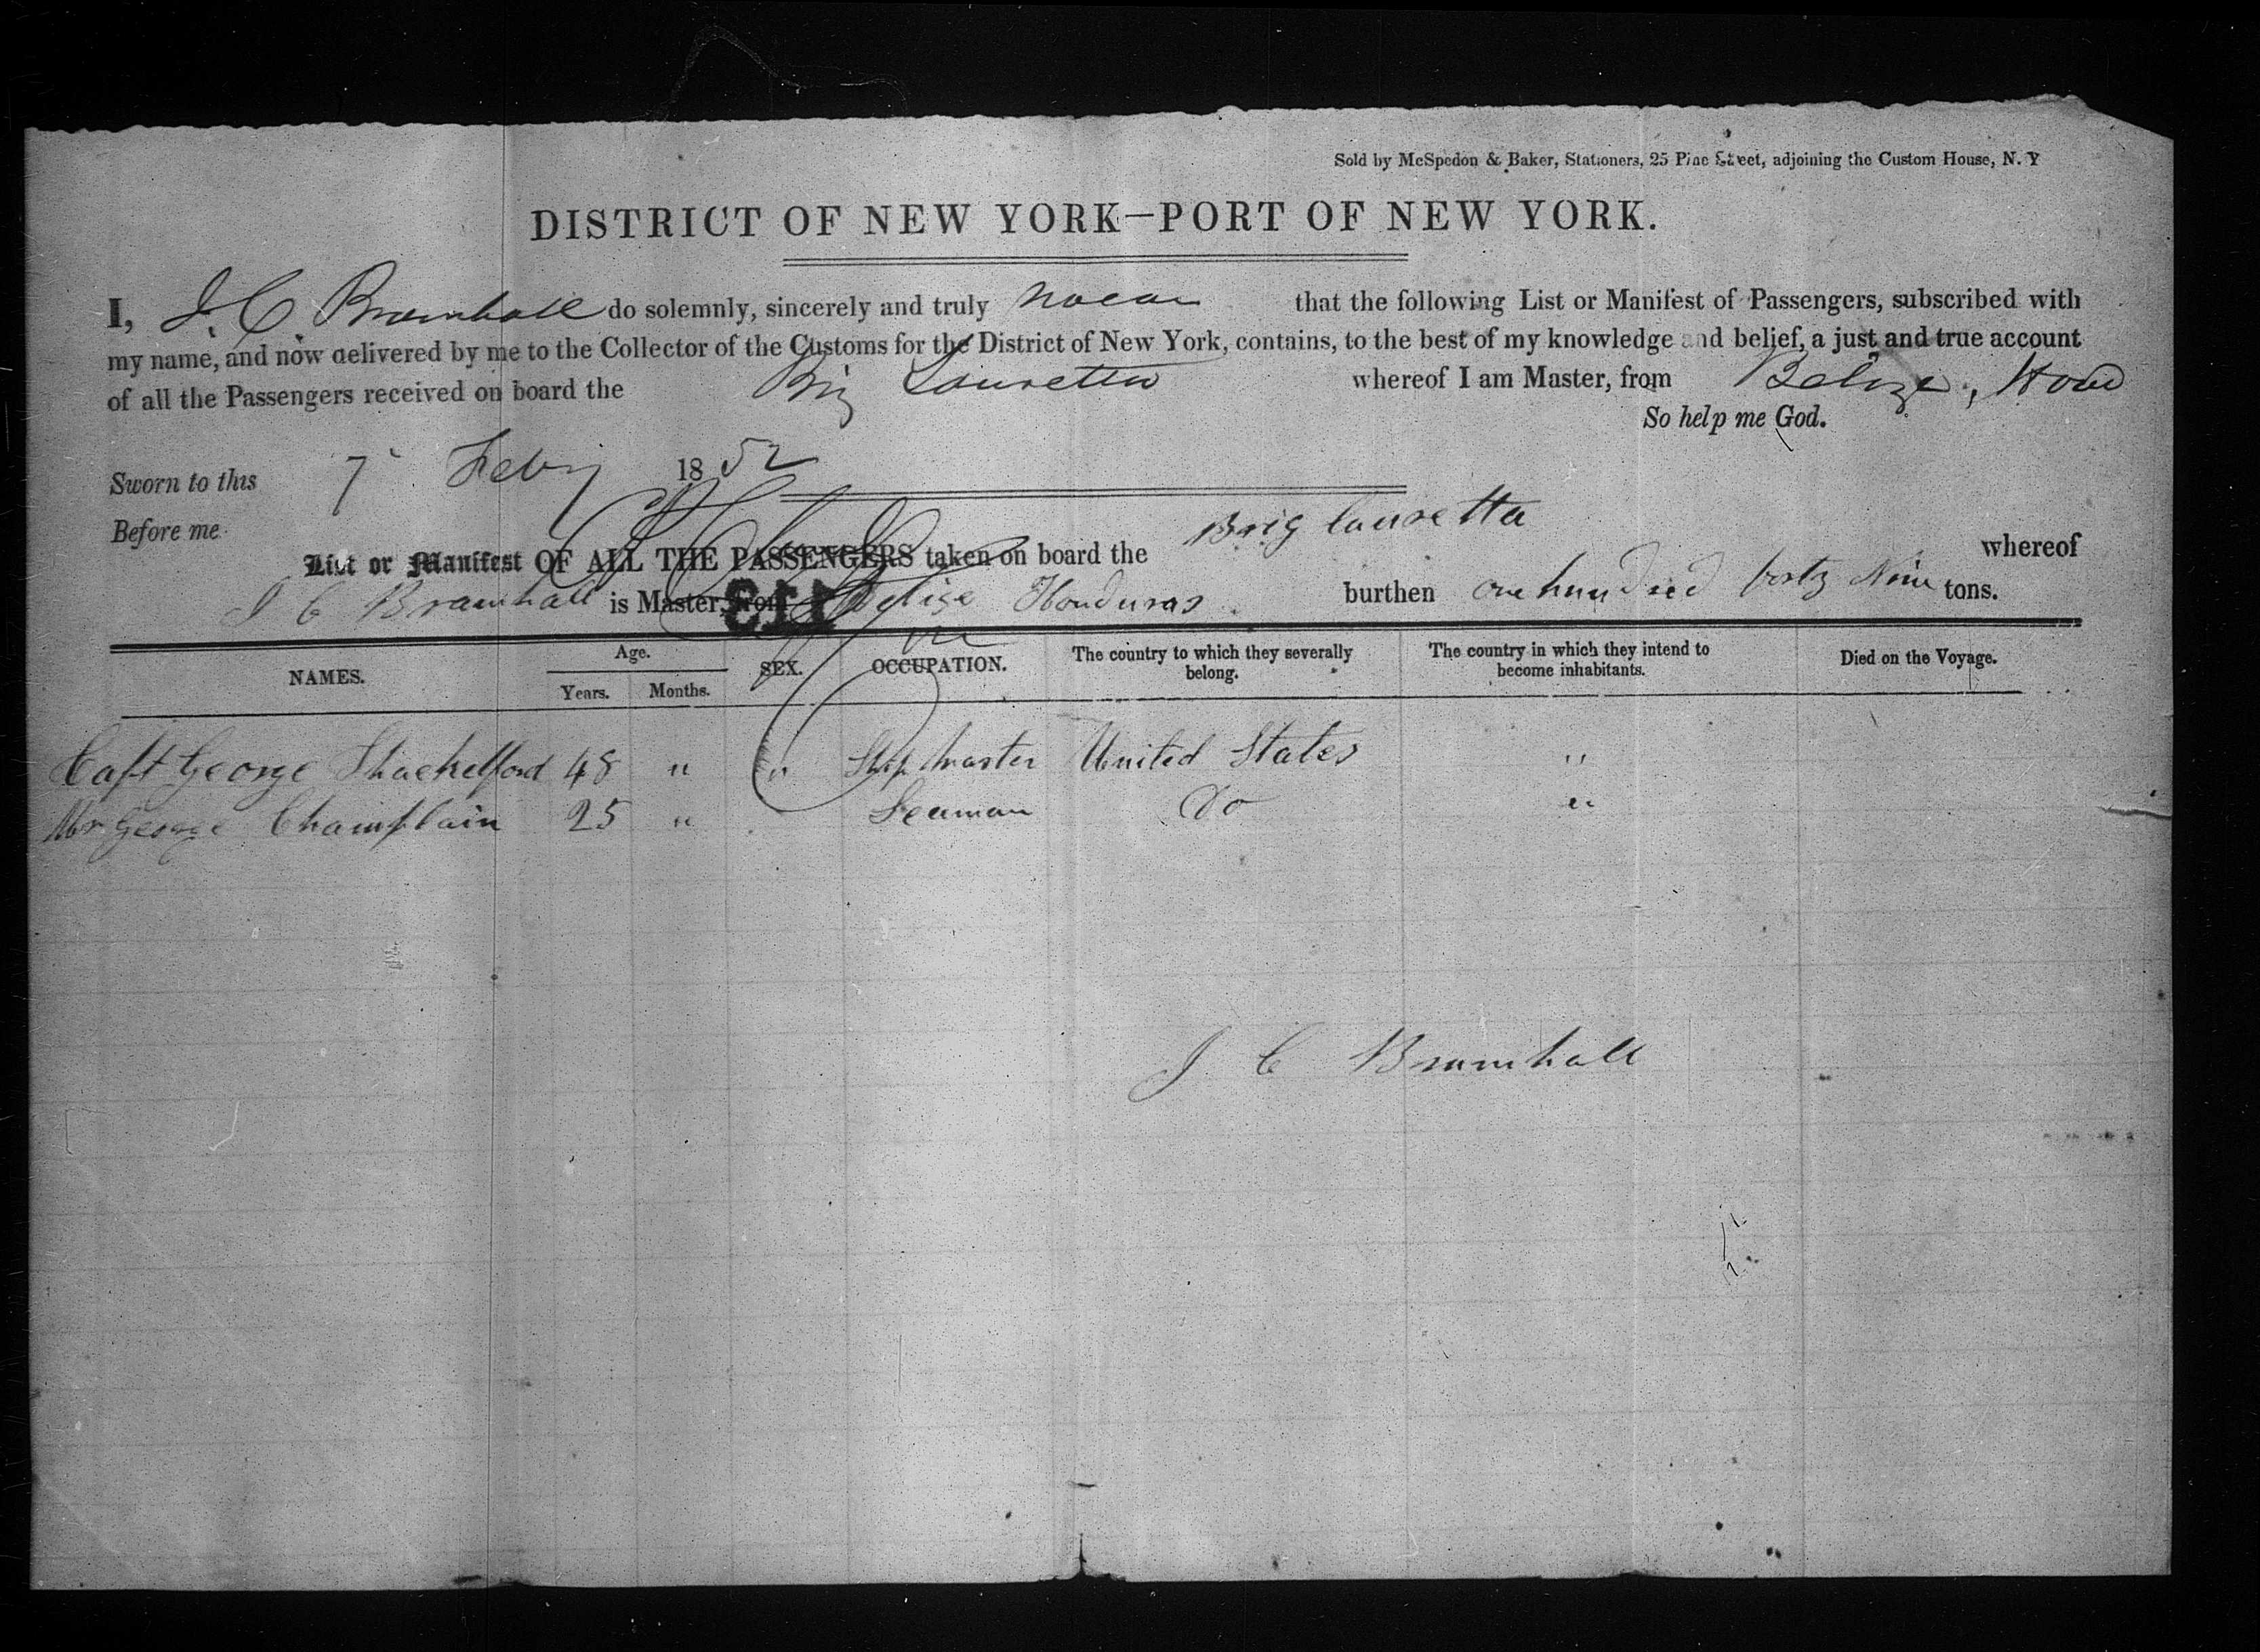 Sold by McSpedon & Baker, Stationers, 25 Pine Street, adjoining the Custom House, N. Y
DISTRICT OF NEW YORK—PORT OF NEW YORK.
I, J. C. Bramhall do solemnly, sincerely and truly swear that the following List or Manifest of Passengers, subscribed with
my name, and now delivered by me to the Collector of the Customs for the District of New York, contains, to the best of my knowledge and belief, a just and true account
of all the Passengers received on board the Brig Lauretta whereof I am Master, from Belize, Hond
So help me God.
Sworn to this 7 Feby 1852
Before me
List or Manifest OF ALL THE PASSENGERS taken on board the Brig Lauretta whereof
J C Bramhall is Master, from Belize Honduras burthen one hundred forty Nine tons.
113
NAMES. Age. Years. Months. SEX. OCCUPATION. The country to which they severally belong. The country in which they intend to become inhabitants. Died on the Voyage.
Capt George Shackelford 48 " " Ship Master United States "
Mr George Champlain 25 " Seaman Do "
J C Bramhall